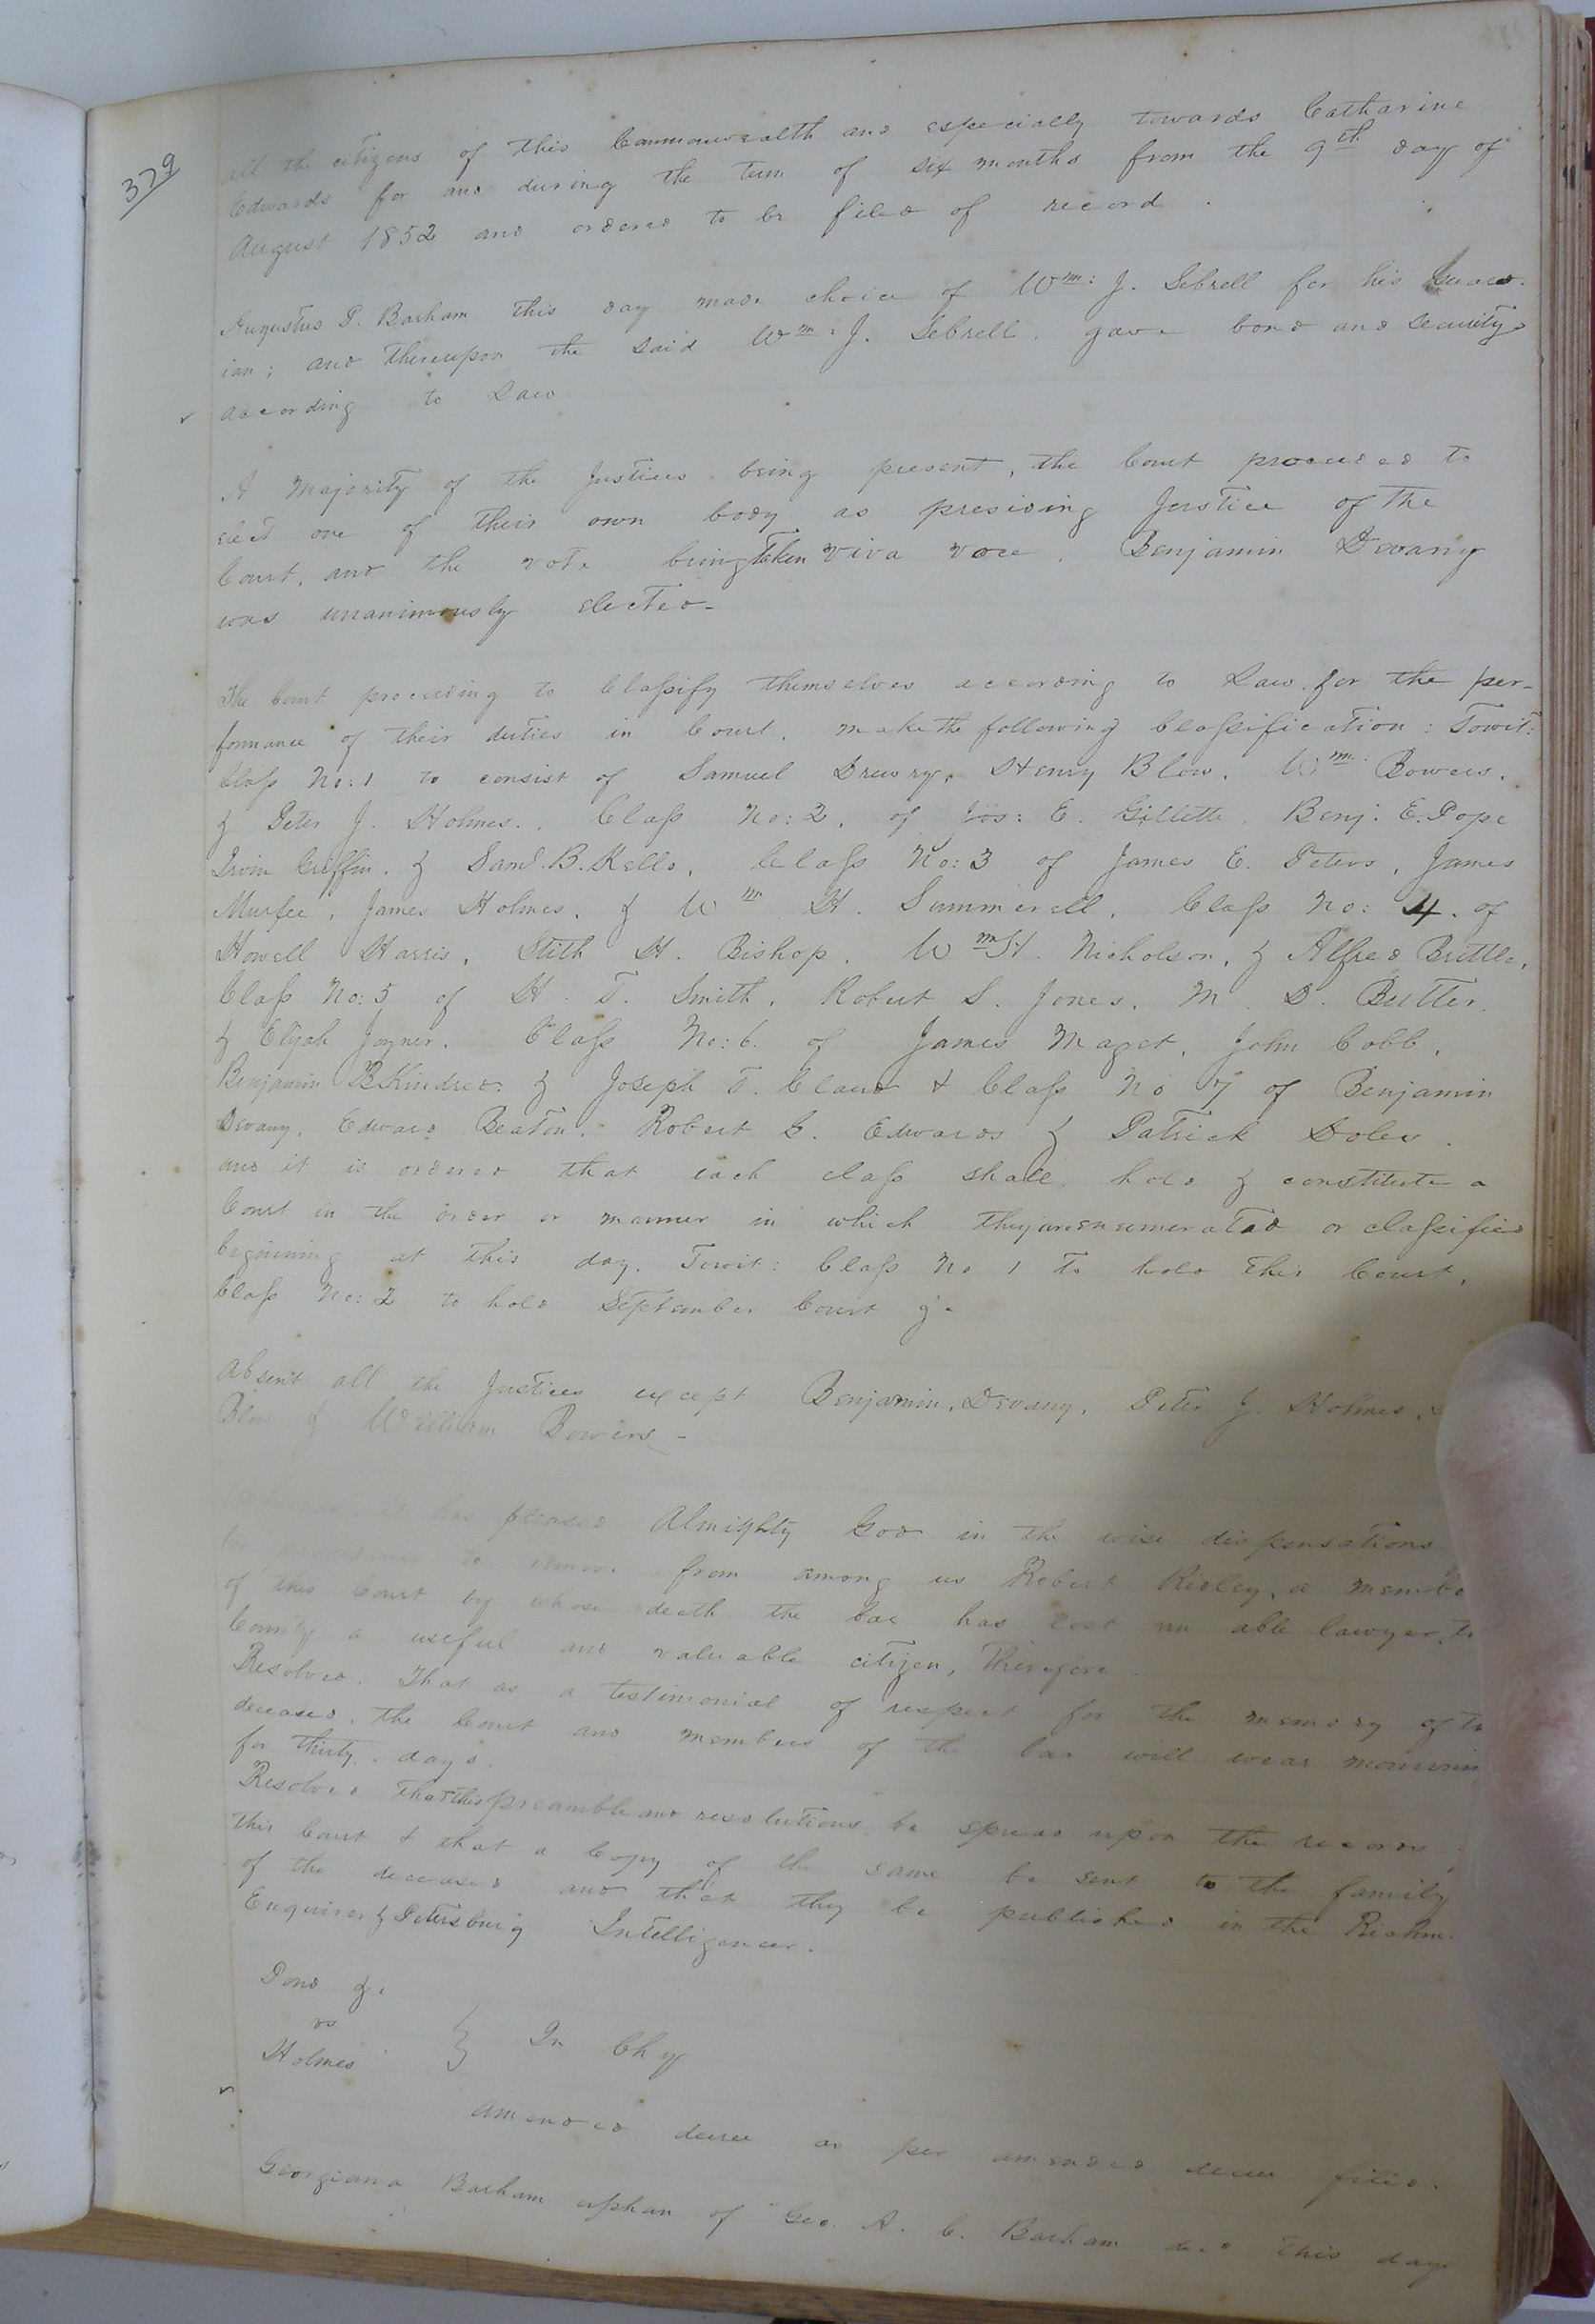 379
all the citizens of this Commonwealth and especially towards Catharine
Edwards for and during the term of six months from the 9th day of
August 1852 and ordered to be filed of record.
Augustus P. Barham this day made choice of Wm: J. Sebrell for his Guard-
ian; and thereupon the said Wm: J. Sebrell. gave bond and security
according to Law
A Majority of the Justices being present, the Court proceeded to
elect one of their own body as presiding Justice of the
Court, and the vote being taken viva voce, Benjamin Devany
was unanimously elected-
The Court proceeding to Classify themselves according to Law for the per-
formance of their duties in Court, make the following Classification: Towit:
Class No: 1 to consist of Samuel Drewry, Henry Blow, Wm: Bowers,
& Peter J. Holmes. Class No: 2, of Jos: E. Gillette, Benj: E. Pope
Irvin Griffin, & Saml. B. Kello, Class No: 3 of James E. Peters, James
Murfee, James Holmes, & Wm H. Summerell, Class No: 4. of
Howell Harris, Stith H. Bishop, Wm H. Nicholson, & Alfred Brittle,
Class No: 5 of H. T. Smith, Robert S. Jones, M. D. Butler,
& Elijah Joyner, Class No: 6. of James Maget, John Cobb,
Benjamin B Kindred & Joseph T. Claud & Class No 7 of Benjamin
Devany, Edward Beaton, Robert G. Edwards & Patrick Doles.
and it is ordered that each class shall hold & constitute a
Court in the order or manner in which they are enumerated or classified
beginning at this day, Towit: Class No 1 to hold this Court,
Class No: 2 to hold September Court &c
Absent all the Justices except Benjamin Devany, Peter J. Holmes,
Blow & William Bowers-
Whereas, it has pleased Almighty God in the wise dispensations
his providence to remove from among us Robert Ridley, a membe
of this Court by whose death the bar has lost an able lawyer, th
County a useful and valuable citizen, Therefore
Resolved, That as a testimonial of respect for the memory of th
deceased, the Court and members of the bar will wear mournin
for thirty days.
Resolved that this preamble and resolutions be spread upon the records
this Court & that a Copy of the same be sent to the family
of the deceased and that they be published in the Richm.
Enquirer & Petersburg Intelligencer.
Pond &c
vs
Holmes } In Chy
Amended decree as per amended decree filed.
Georgiana Barham orphan of Geo. A. C. Barham decd this day